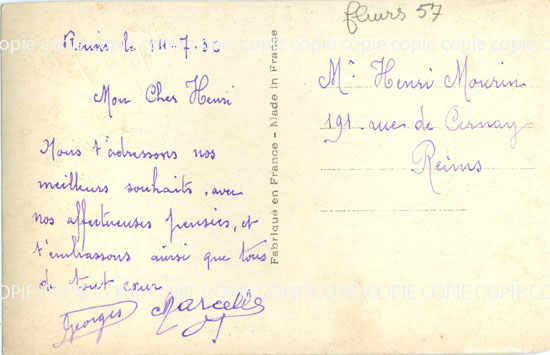 fleurs 57
Reims le 14-7-36
Mon Cher Henri
Nous t'adressons nos
meilleurs souhaits, avec
nos affectueuses pensées, et
t'embrassons ainsi que tous
de tout cœur
Georges Marcelle
Fabriqué en France - Made in France
Mr Henri Mourin
191 rue de Cernay
Reims
COPIE COPIE COPIE COPIE COPIE COPIE